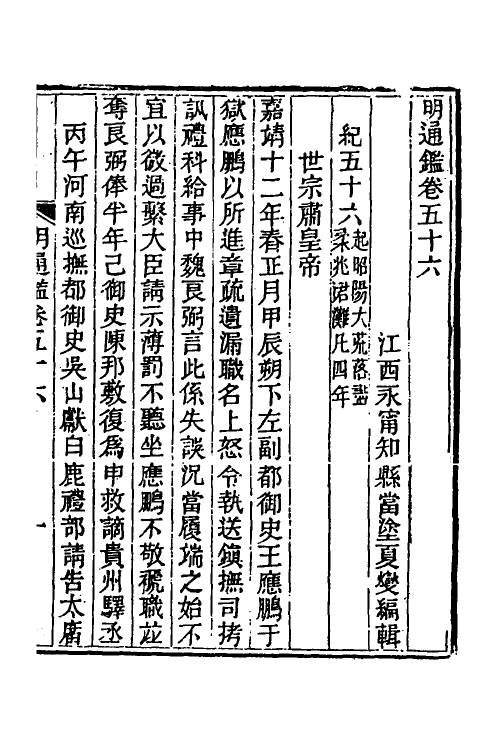 明通鑑卷五十六
江西永甯知縣當塗夏燮編輯
紀五十六起昭陽大荒落盡柔兆涒灘凡四年
世宗肅皇帝
嘉靖十二年春正月甲辰朔下左副都御史王應鵬于
獄應鵬以所進章疏遺漏職名上怒令執送鎮撫司拷
訊禮科給事中魏良弼言此係失誤況當履端之始不
宜以微過繫大臣請示薄罰不聽坐應鵬不敬褫職並
奪良弼俸半年己御史陳邦敷復爲申救謫貴州驛丞
丙午河南巡撫都御史吳山獻白鹿禮部請告太廟
明通鑑卷五十六
一